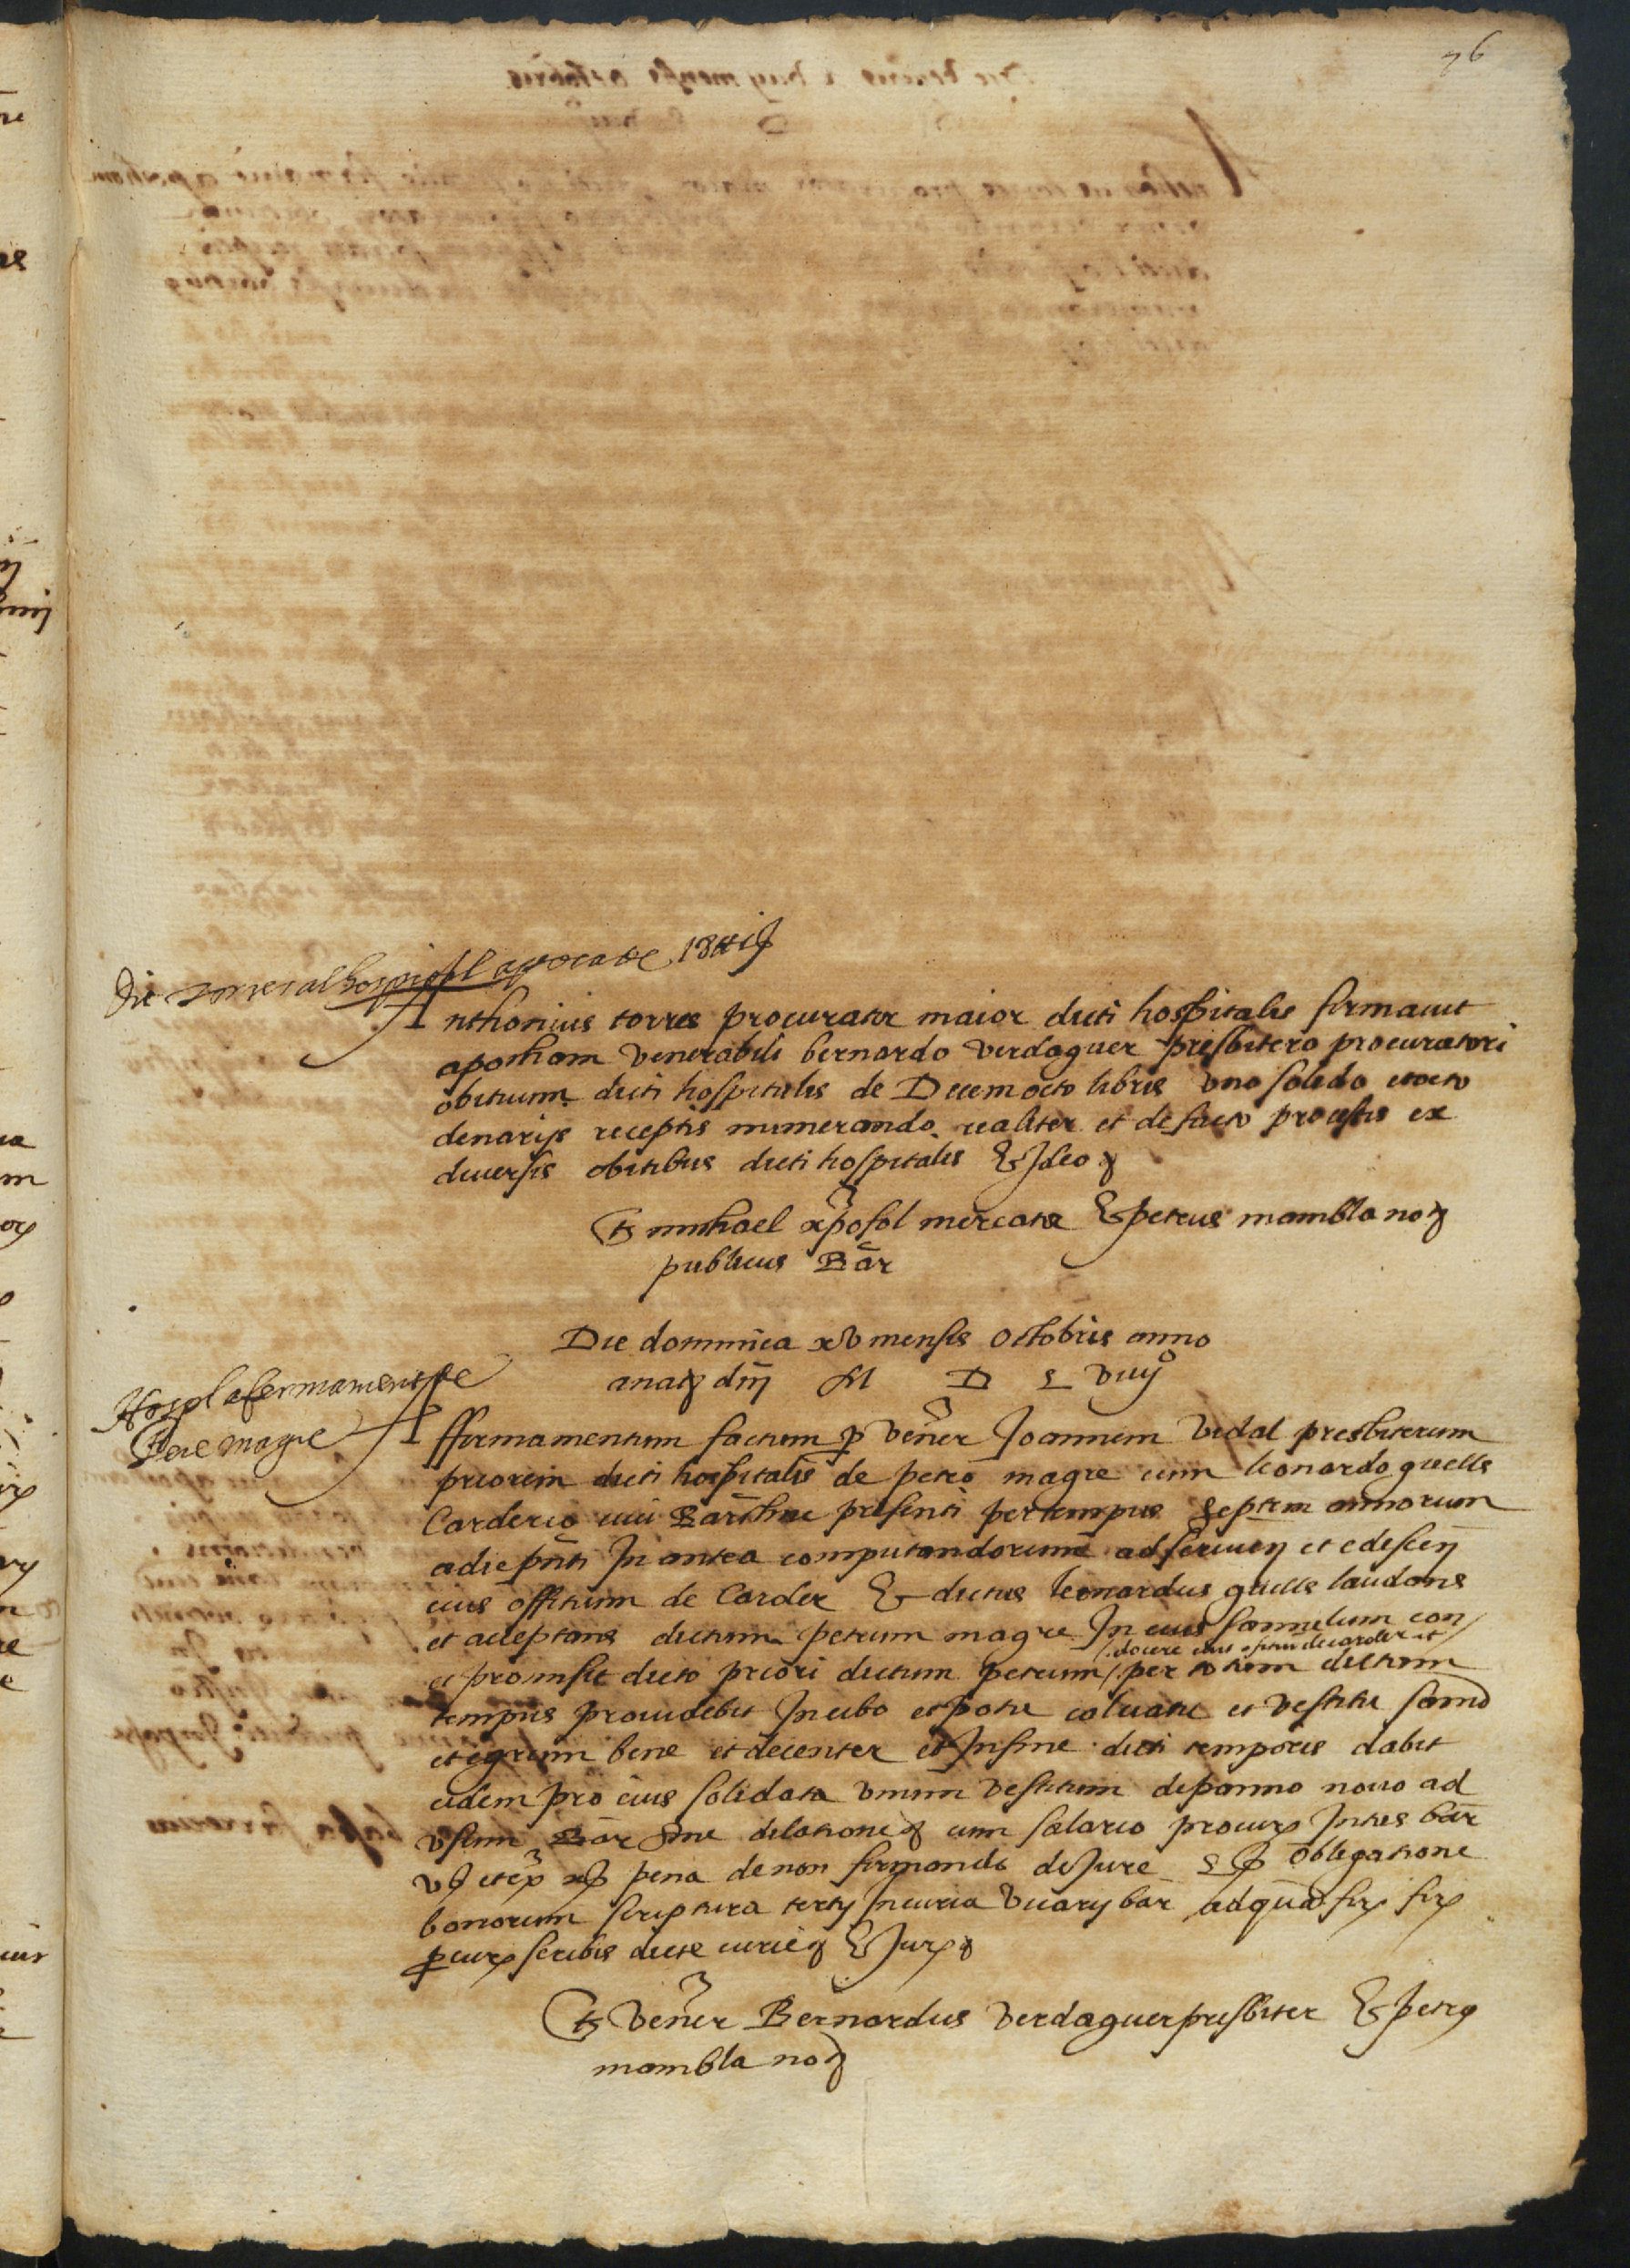 76
Anthonius torres procurator maior dicti hospitalis firmavit
apocham venerabili bernardo verdaguer presbitero procuratori
obituum dicti hospitalis de Decem octo libris uno solido et octo
denarijs receptis numerando realiter et de facto procestis ex
diversis obitibus dicti hospitalis Et Ideo &
Ts michael xpofol mercator Et petrus mambla not
publicus Bar
Die dominica xv mensis Octobris anno
a nat dnj M D L viiijº
Hospl afermament de
Pere magre
Affirmamentum factum p vener Joannem vidal presbiterum
priorem dicti hospitalis de petro magre cum leonardo quells
Carderio civi Barchne presenti per tempus septem annorum
a die pnti In antea computandorum ad serviend et edescend
eius offitium de Carder Et dictus leonardus quells laudans
et acceptans dictum petrum magre In eius famulum con
docere eius offitiu de carder et
et promisit dicto priori dictum petrum per totum dictum
tempus providebit In cibo et potu calciatu et vestitu sanu
et egrum bene et decenter et In fine dicti temporis dabit
eidem pro eius solidata unum vestitum de panno novo ad
usum Bar sine dilatione & cum salario procur Intus bar
v s et ex x s pena de non firmando de Jure L s Obligatione
bonorum scriptura tertij In curia vicarij bar ad qua fir fir
p cur scribis dicte curie & Et Jur &
Ts vener Bernardus verdaguer presbiter Et petrus
mambla not